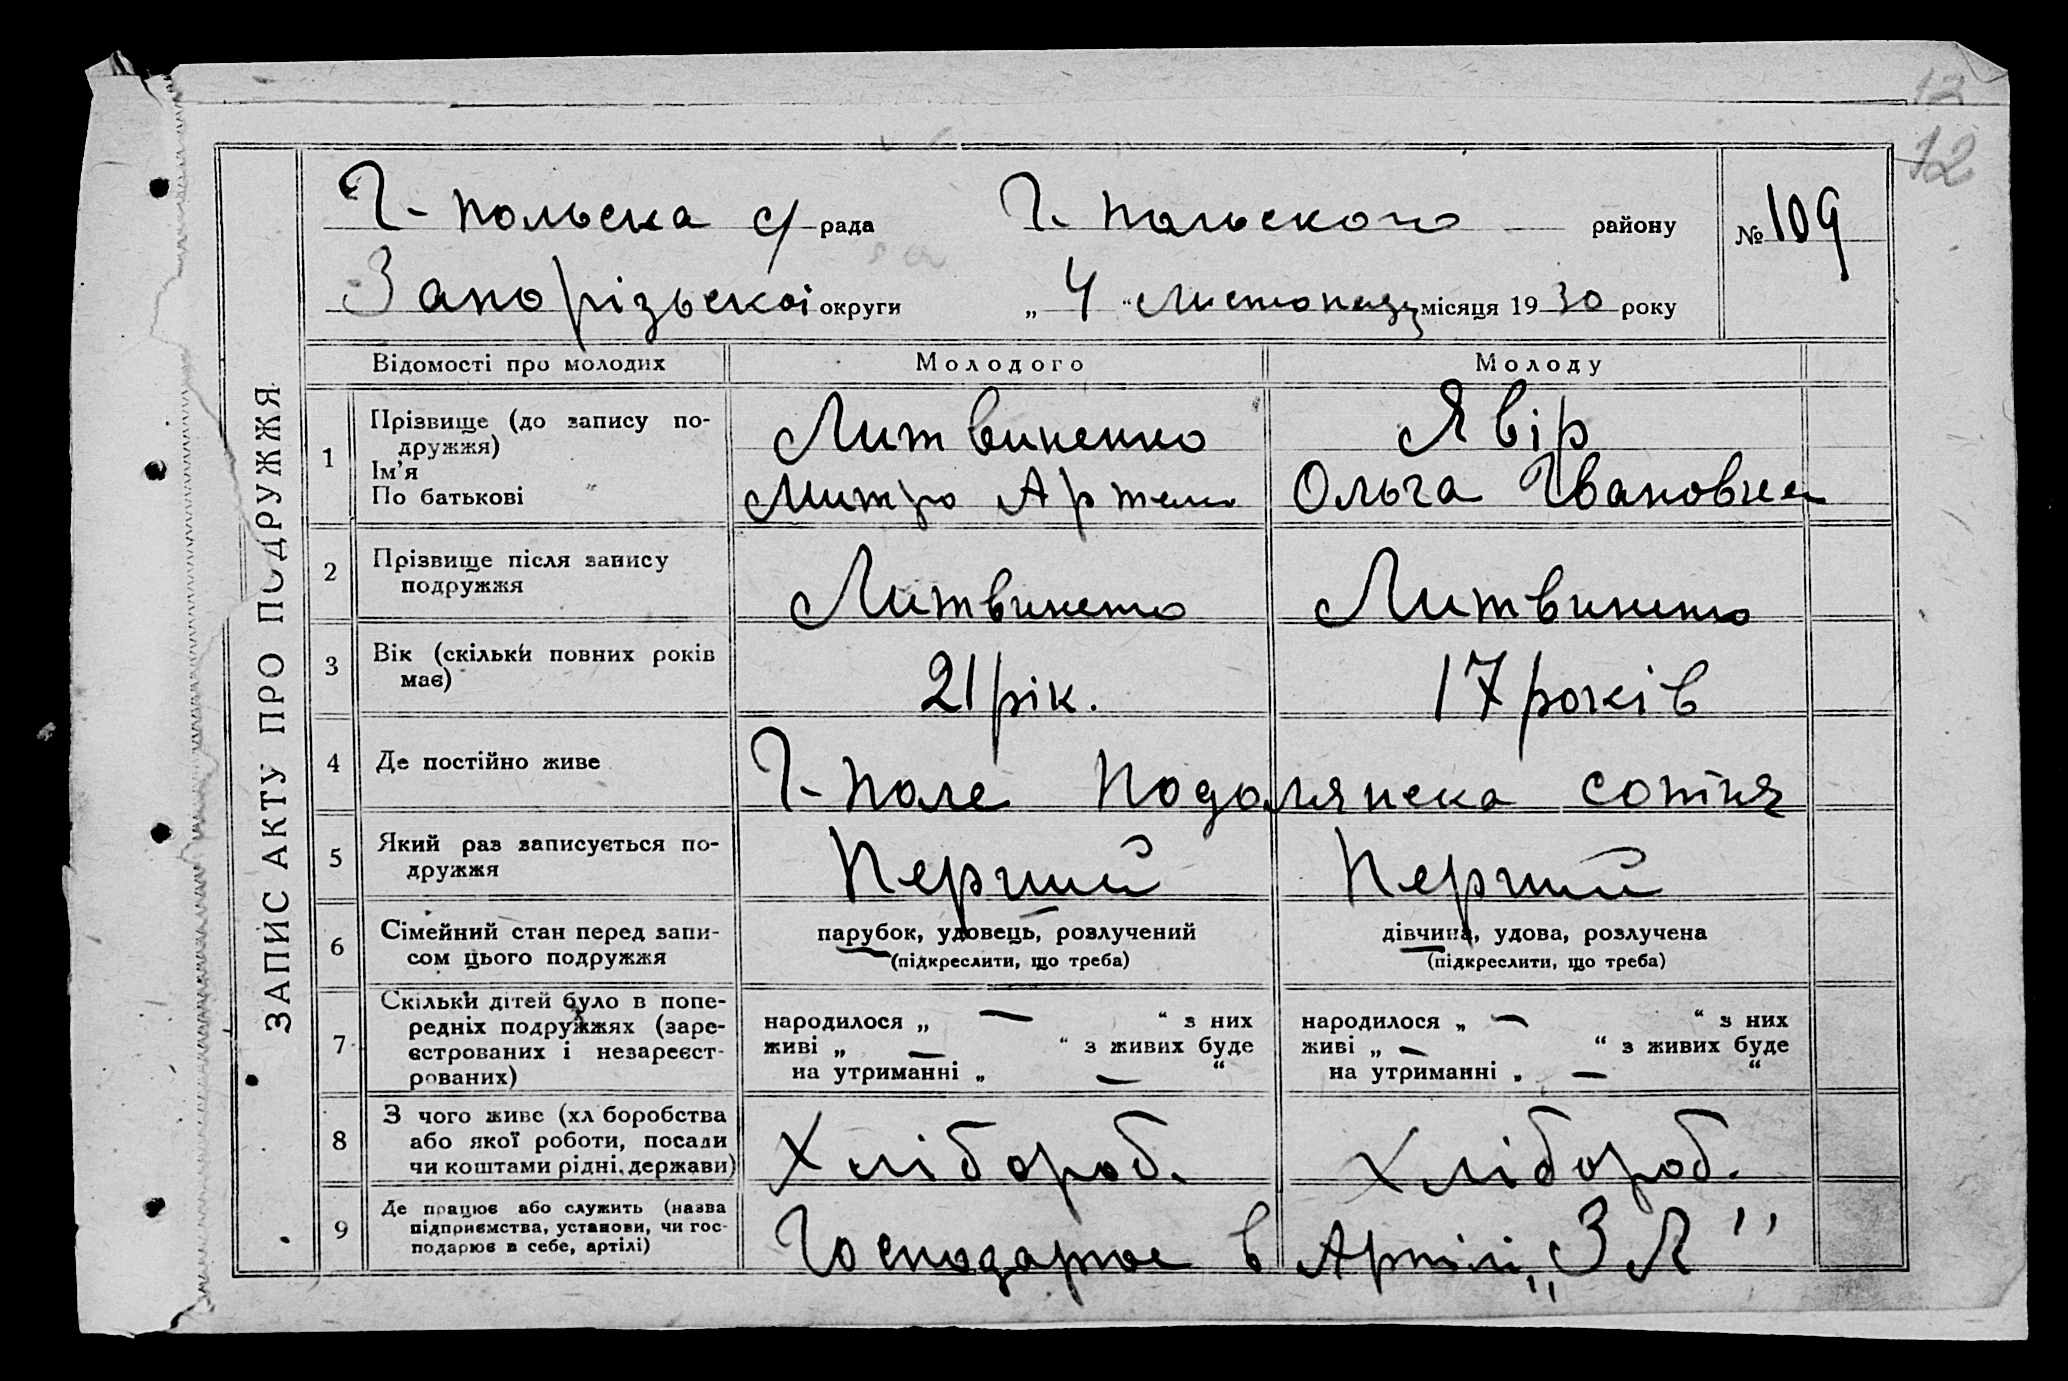 13
12
ЗАПИС АКТУ ПРО ПОДРУЖЖЯ
Г-польска с/рада Г-польского району № 109
Запорізької округи „4“ Листопаду місяця 1930 року
Відомості про молодих Молодого Молоду
1 Прізвище (до запису по-
дружжя)
Ім’я
По батькові
Литвиненко
Митро Артем
Явір
Ольга Івановна
2 Прізвище після запису
подружжя
Литвиненко Литвиненко
3 Вік (скільки повних років
має)
21 рік. 17 років
4 Де постійно живе Г-поле Подолянска сотня
5 Який раз записується по-
дружжя
Перший Перший
6 Сімейний стан перед запи-
сом цього подружжя
парубок, удовець, розлучений
(підкреслити, що треба)
дівчина, удова, розлучена
(підкреслити, що треба)
7 Скільки дітей було в попе-
редніх подружжях (заре-
єстрованих і незареєст-
рованих)
народилося „ — “ з них
живі „ — “ з живих буде
на утриманні „ — “
народилося „ — “ з них
живі „ — “ з живих буде
на утриманні „ — “
8 З чого живе (хл боробства
або якої роботи, посади
чи коштами рідні, держави)
Хлібороб. Хлібороб.
9 Де працює або служить (назва
підприємства, установи, чи гос-
подарює в себе, артілі)
Господарює в Артілі „ЗЛ"